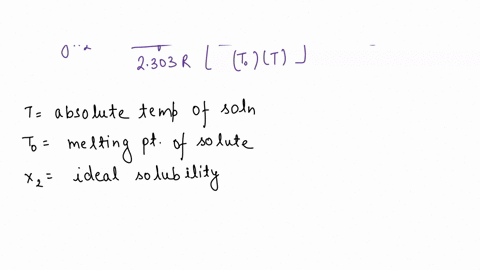 2.303 R [ (T₀)(T) ]
T = absolute temp of soln
T₀ = melting pt. of solute
x₂ = ideal solubility